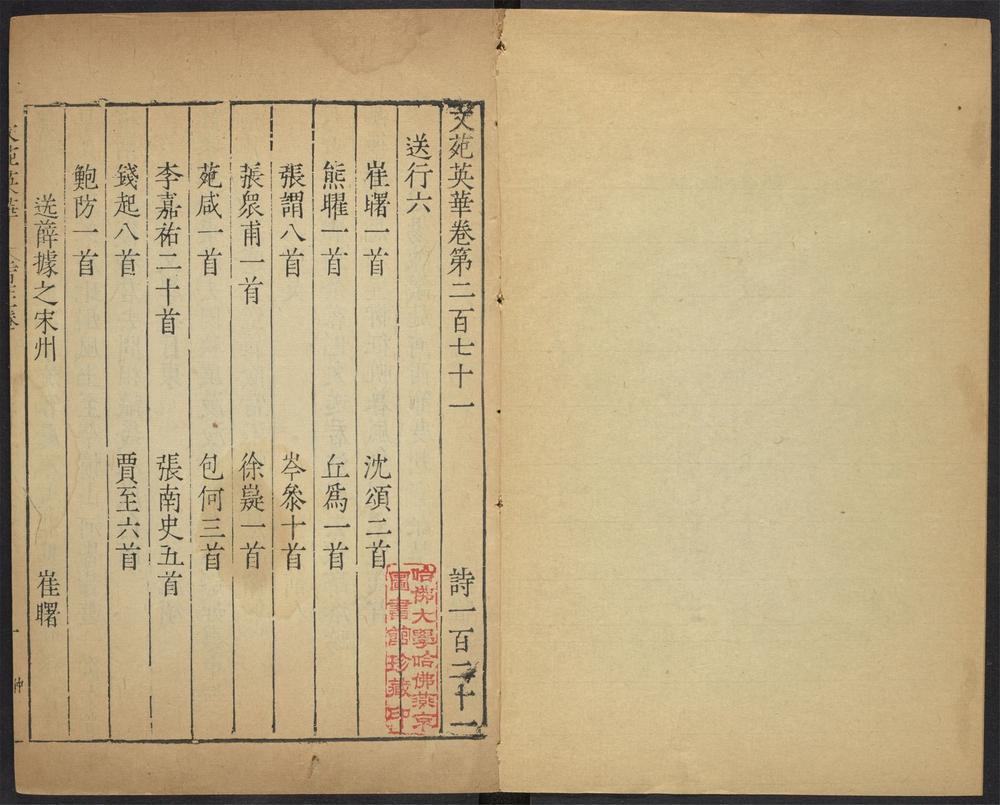 文苑英華卷第二百七十一 詩一百二十一
送行六
崔曙一首 沈頌二首
熊曜一首 丘爲一首
張謂八首 岑參十首
張衆甫一首 徐嶷一首
苑咸一首 包何三首
李嘉祐二十首 張南史五首
錢起八首 賈至六首
鮑防一首
送薛據之宋州 崔曙
哈佛大學哈佛燕京
圖書館珍藏印